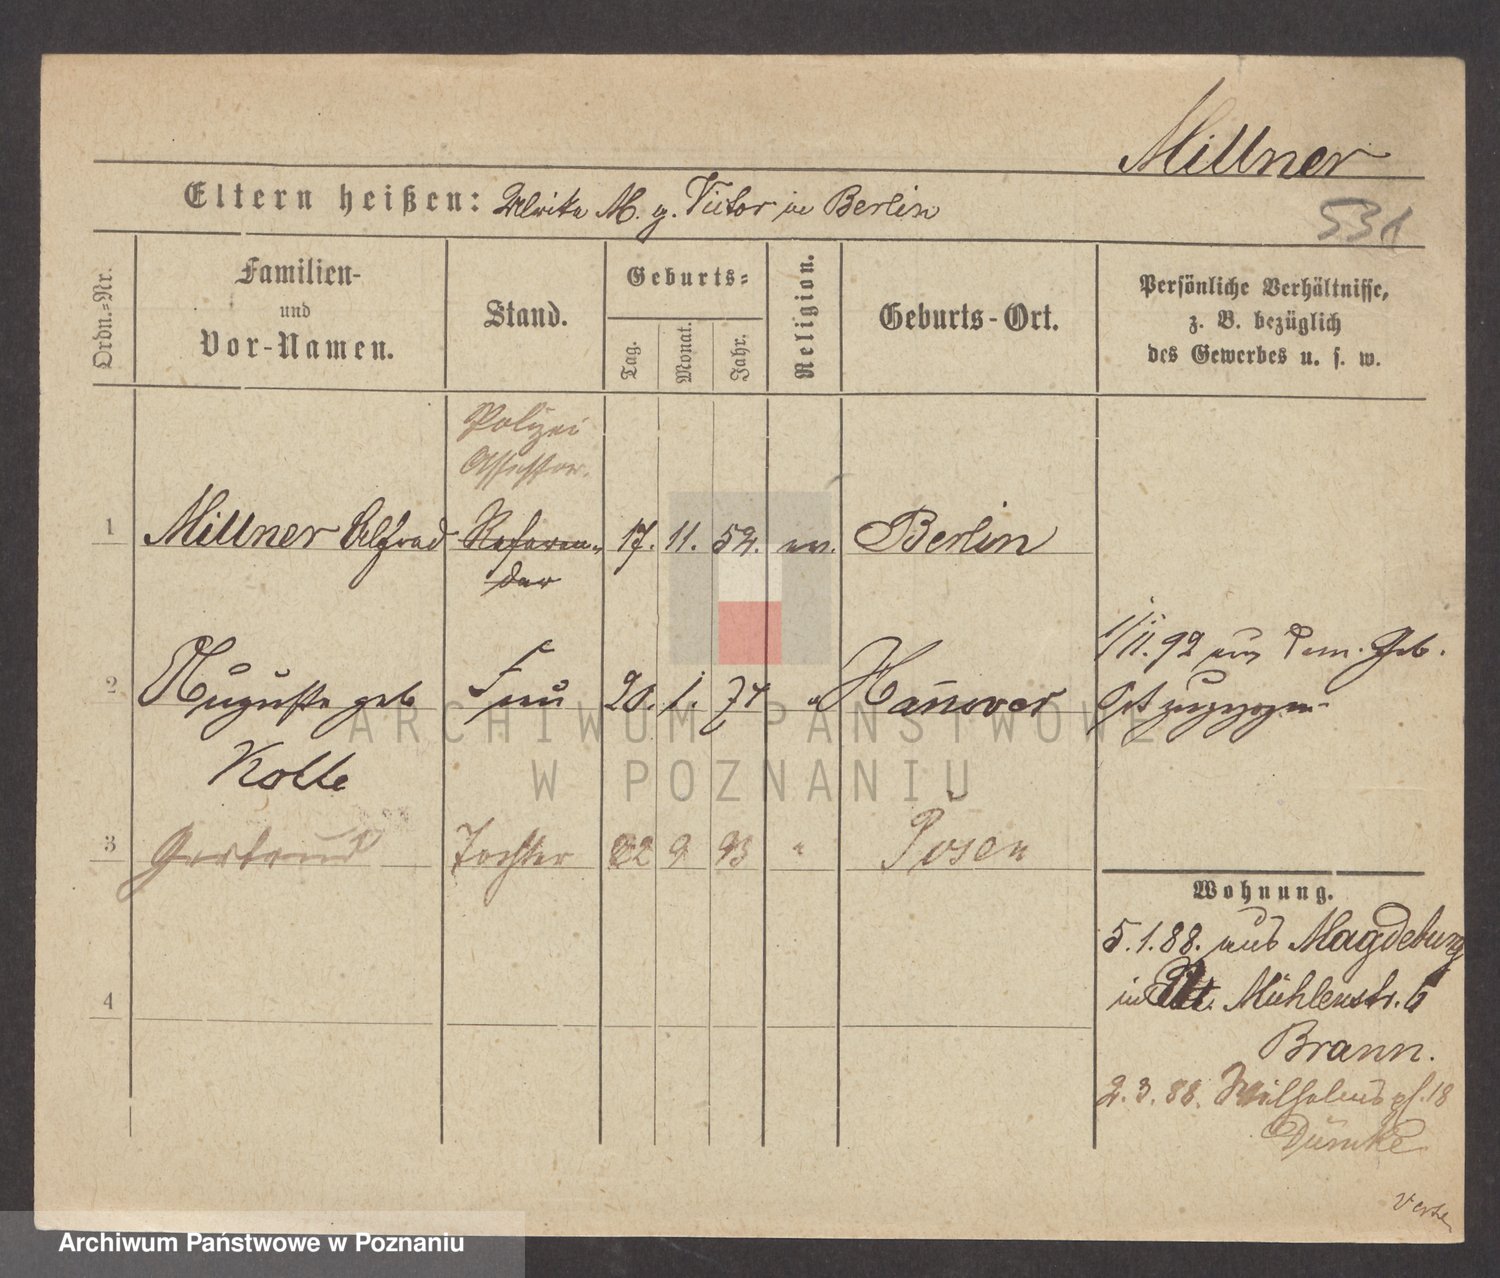 Millner
Eltern heißen: Ulrike M. g. Victor in Berlin
531
Ordn.-Nr.
Familien-
und
Vor-Namen.
Stand.
Geburts-
Tag.
Monat.
Jahr.
Religion.
Geburts-Ort.
Persönliche Verhältnisse,
z. B. bezüglich
des Gewerbes u. s. w.
Polizei
Assessor.
1 Millner Alfred Referen- 17. 11. 52. ev. Berlin
dar
1/11. 92 aus dem. Geb.
2 Auguste geb Frau 20. 1. 74 " Hanover Ort zugezogen
Kolle
3 Gertrud Tochter 22 9 93 " Posen
Wohnung.
5.1.88. aus Magdeburg
4
in Mühlenstr. 6
Brann.
2.3.88. Wilhelmspl. 18
Dümke
ARCHIWUM PAŃSTWOWE
W POZNANIU
Archiwum Państwowe w Poznaniu